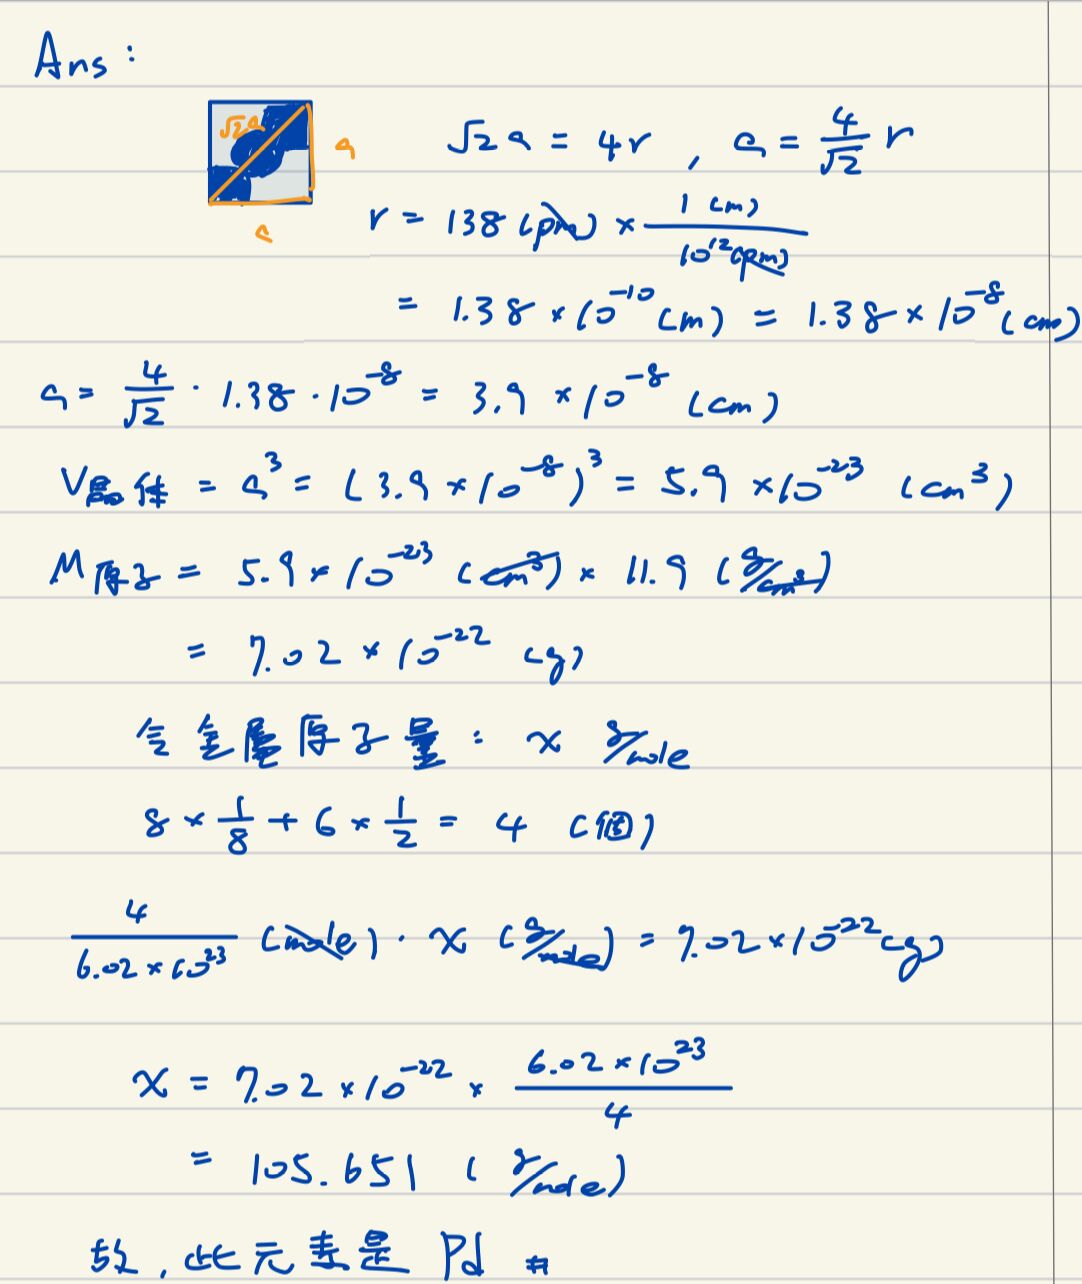 Ans:
√2a a
a
√2 a = 4r , a = 4/√2 r
r = 138 (pm) × 1 (m) / 10¹² (pm)
= 1.38 × 10⁻¹⁰ (m) = 1.38 × 10⁻⁸ (cm)
a = 4/√2 · 1.38 · 10⁻⁸ = 3.9 × 10⁻⁸ (cm)
V晶体 = a³ = (3.9 × 10⁻⁸)³ = 5.9 × 10⁻²³ (cm³)
M原子 = 5.9 × 10⁻²³ (cm³) × 11.9 (g/cm³)
= 7.02 × 10⁻²² (g)
令金屬原子量 : x g/mole
8 × 1/8 + 6 × 1/2 = 4 (個)
4 / 6.02 × 10²³ (mole) · x (g/mole) = 7.02 × 10⁻²² (g)
x = 7.02 × 10⁻²² × 6.02 × 10²³ / 4
= 105.651 (g/mole)
故, 此元素是 Pd #